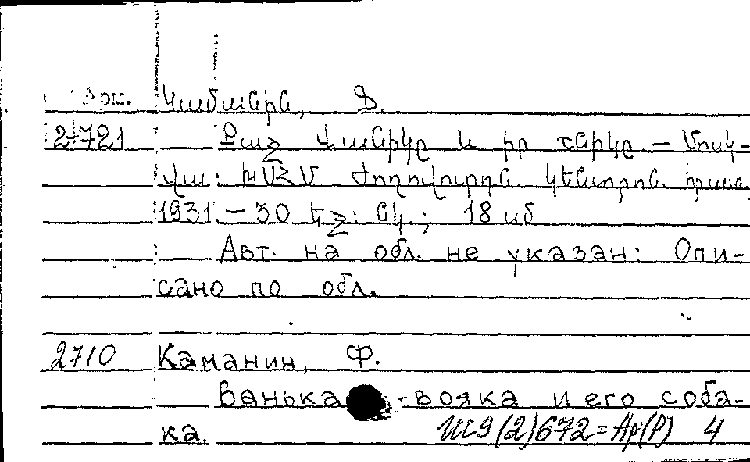 Арм. Կամանին, Ֆ.
2-721 Քաջ Վանիկը և իր շնիկը. — Մոսկ-
վա: ԽՍՀՄ Ժողովուրդն. կենտրոն. հրատ.
1931. — 30 եջ: նկ.; 18 սմ
Авт. на обл. не указан: Опи-
сано по обл.
2710 Каманин, Ф.
Ванька -вояка и его соба-
ка. Ш9(2)672=Ар(Р) 4